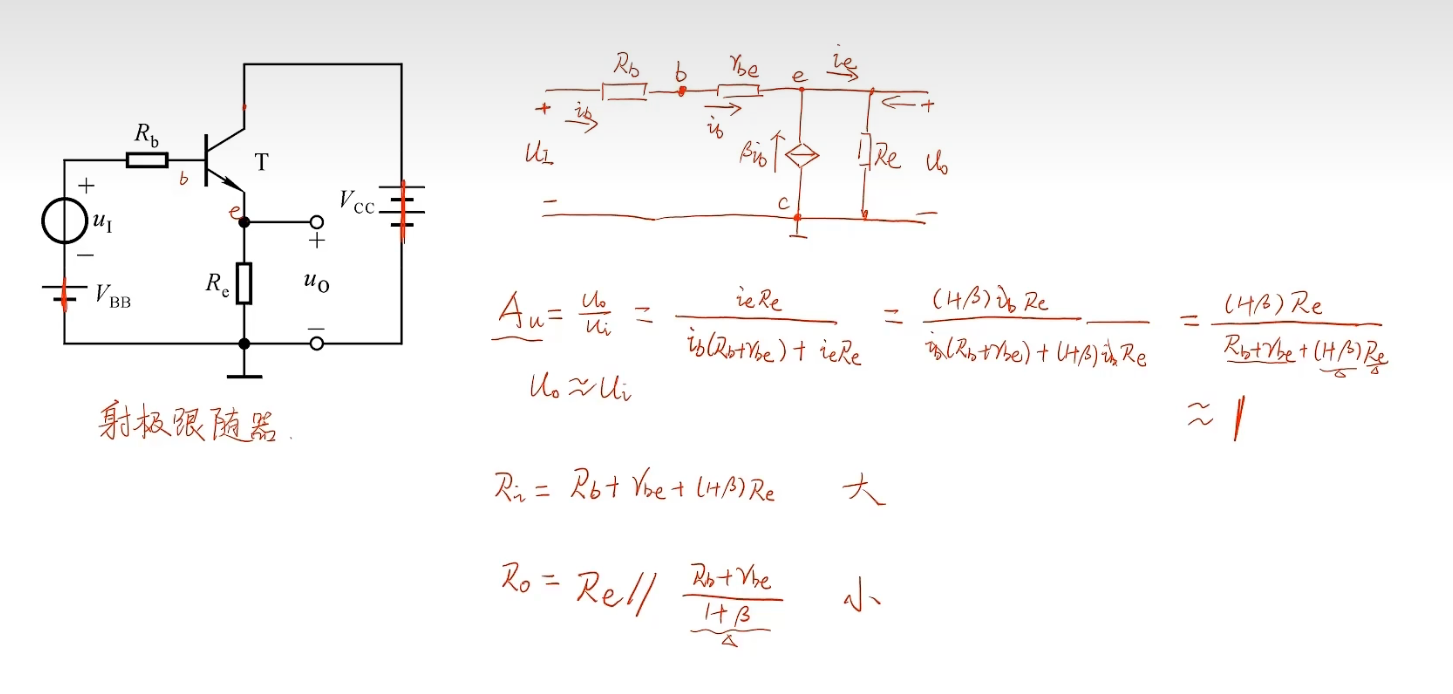 R_b
b
T
e
+
u_I
−
V_BB
V_CC
R_e
+
u_O
−
射极跟随器.
R_b b r_be e i_e
+ i_b i_b +
U_I βi_b Re U_o
− c −
A_u = U_o/U_i = i_e Re / (i_b(R_b+r_be) + i_e Re) = (1+β)i_b Re / (i_b(R_b+r_be) + (1+β)i_b Re) = (1+β)Re / (R_b+r_be+(1+β)Re)
U_o ≈ U_i
≈ 1
R_i = R_b + r_be + (1+β)Re 大
R_o = Re // (R_b+r_be)/(1+β) 小